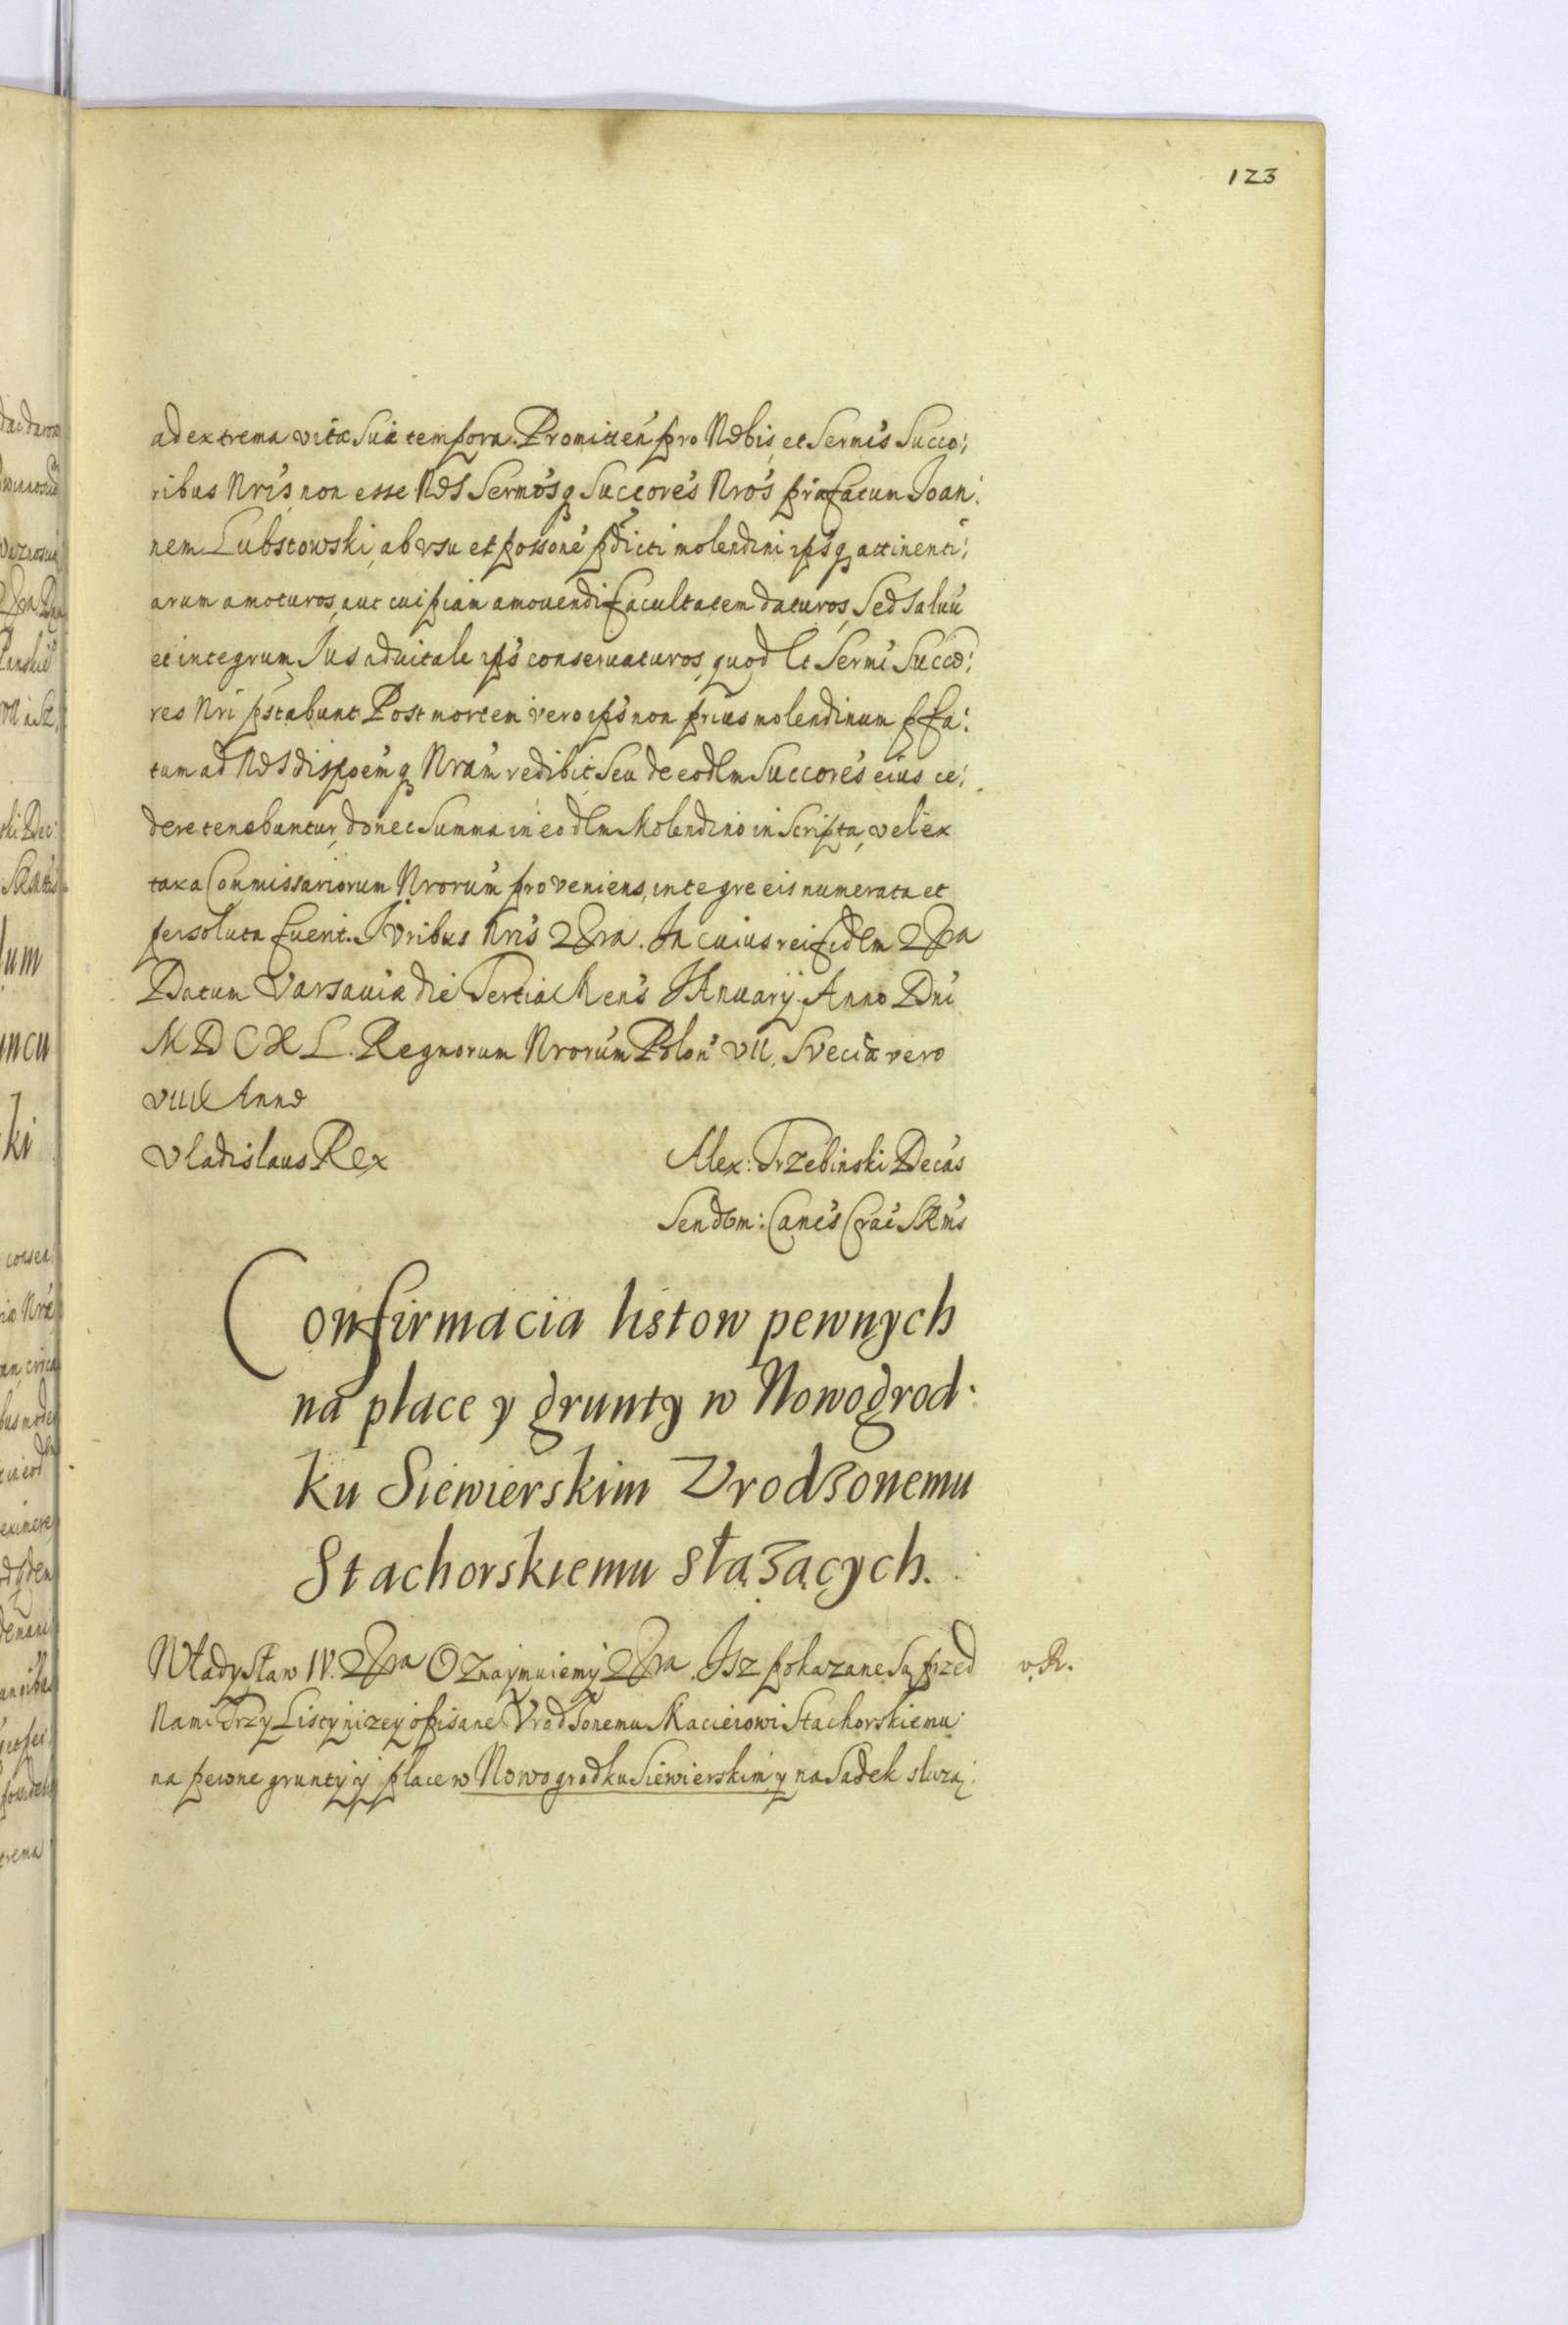 123
ad extrema vitæ suæ tempora. Promitteń pro Nobis, et Sermis Succo:
ribus Nris, non esse Nos Sermosq Succores Nros præfatum Joan:
nem Lubstowski, ab vsu et possone pdicti molendini ipsq attinenti:
arum amoturos, aut cuipiam amouendi facultatem daturos, Sed saluu
et integrum Jus aduitale ips conseruaturos, quod et Sermi Succo:
res Nri pstabunt. Post mortem vero ips non prius molendinum pfa:
tum ad Nos dispoemq Nram redibit, Seu de eodm Succores eius ce:
dere tenebuntur, donec Summa in eodlm Molendino inscripta, vel ex
taxa Commissariorum Nrorum proveniens, integre eis numerata et
persoluta fuerit. Juribus Nris &ra. In cuius rei fidlm &ra
Datum Varsaviæ die Tertia Mens January Anno Dni
MDCXL. Regnorum Nrorum Polon VII, Sveciæ vero
VIII Anno
Vladislaus Rex
Alex: Trzebinski Decas
Sendom: Canc Crac SRMs
Confirmacia listow pewnych
na place y grunty w Nowogrod:
ku Siewierskim Vrodzonemu
Stachorskiemu słązących.
Władysław IV. &ra Oznaymuiemy &ra. Isz pokazane Są przed
v. R.
Nami Trzy Listy nizey opisane Vrodzonemu Macieiowi Stachorskiemu
na pewne grunty y place w Nowogrodku Siewierskim y na Sadek słuzą: